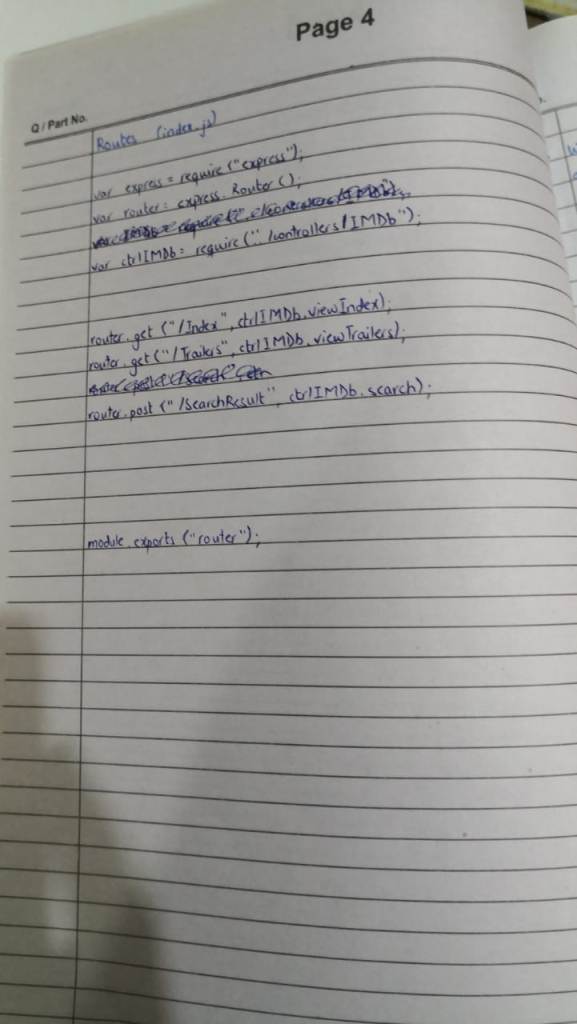 Page 4
Q / Part No.
Routes (index.js)
var express = require ("express");
var router = express. Router ();
var ctrlIMDb = require (".. /controllers/IMDb");
router.get ("/Index", ctrlIMDb.viewIndex);
router.get ("/Trailers", ctrlIMDb.viewTrailers);
router.post ("/SearchResult", ctrlIMDb.search);
module.exports ("router");